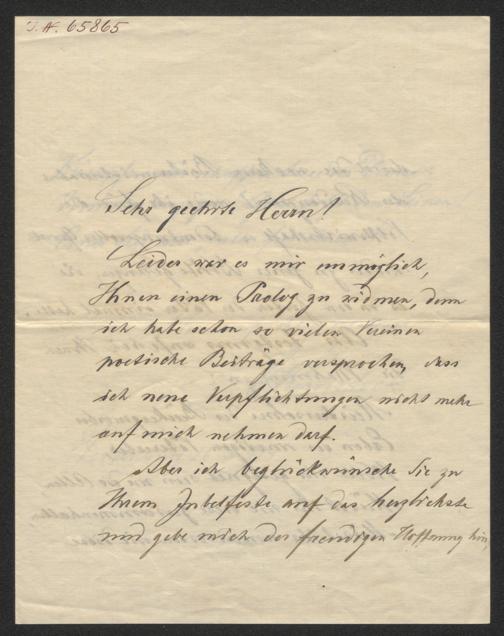 I.N. 65865
Sehr geehrte Herrn!
Leider war es mir unmöglich,
Ihnen einen Prolog zu widmen, denn
ich habe schon so vielen Vereinen
poetische Beiträge versprochen, dass
ich neue Verpflichtungen nicht mehr
auf mich nehmen darf.
Aber ich beglückwünsche Sie zu
Ihrem Jubelfeste auf das herzlichste
und gebe mich der freudigen Hoffnung hin,